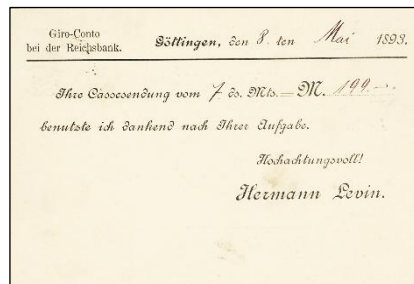 Giro-Conto
bei der Reichsbank.
Göttingen, den 8. ten Mai 1893.
Ihre Cassesendung vom 7 ds. Mts. = M. 199.-
benutzte ich dankend nach Ihrer Aufgabe.
Hochachtungsvoll!
Hermann Levin.